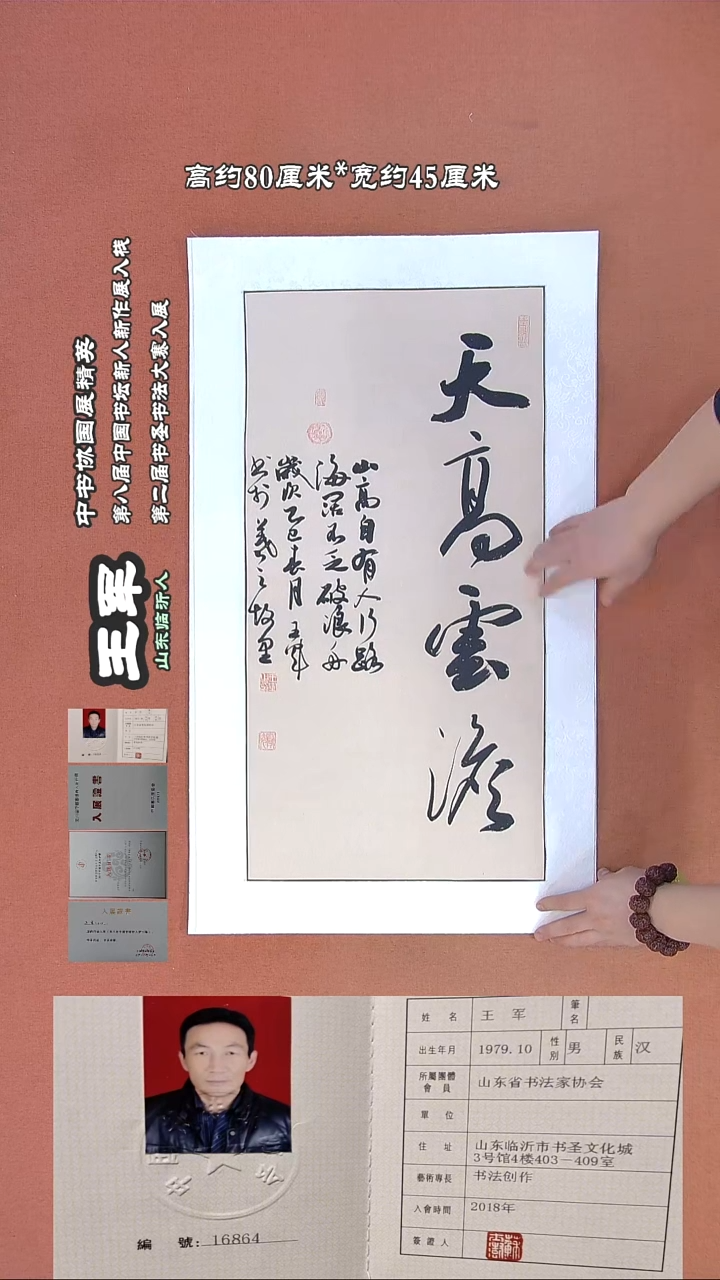 高约80厘米*宽约45厘米
中书协国展精英
第八届中国书坛新人新作展入展
第二届书圣书法大赛入展
王军
山东临沂人
天高雲澹
山高自有人行路
海深不乏破浪舟
歲次乙巳春月王軍
书於羲之故里
入展證書
姓 名 王 军 筆名
出生年月 1979.10 性別 男 民族 汉
所屬團體會員 山东省书法家协会
單 位
住 址 山东临沂市书圣文化城
3号馆4楼403—409室
藝術專長 书法创作
入會時間 2018年
簽證人
編 號: 16864